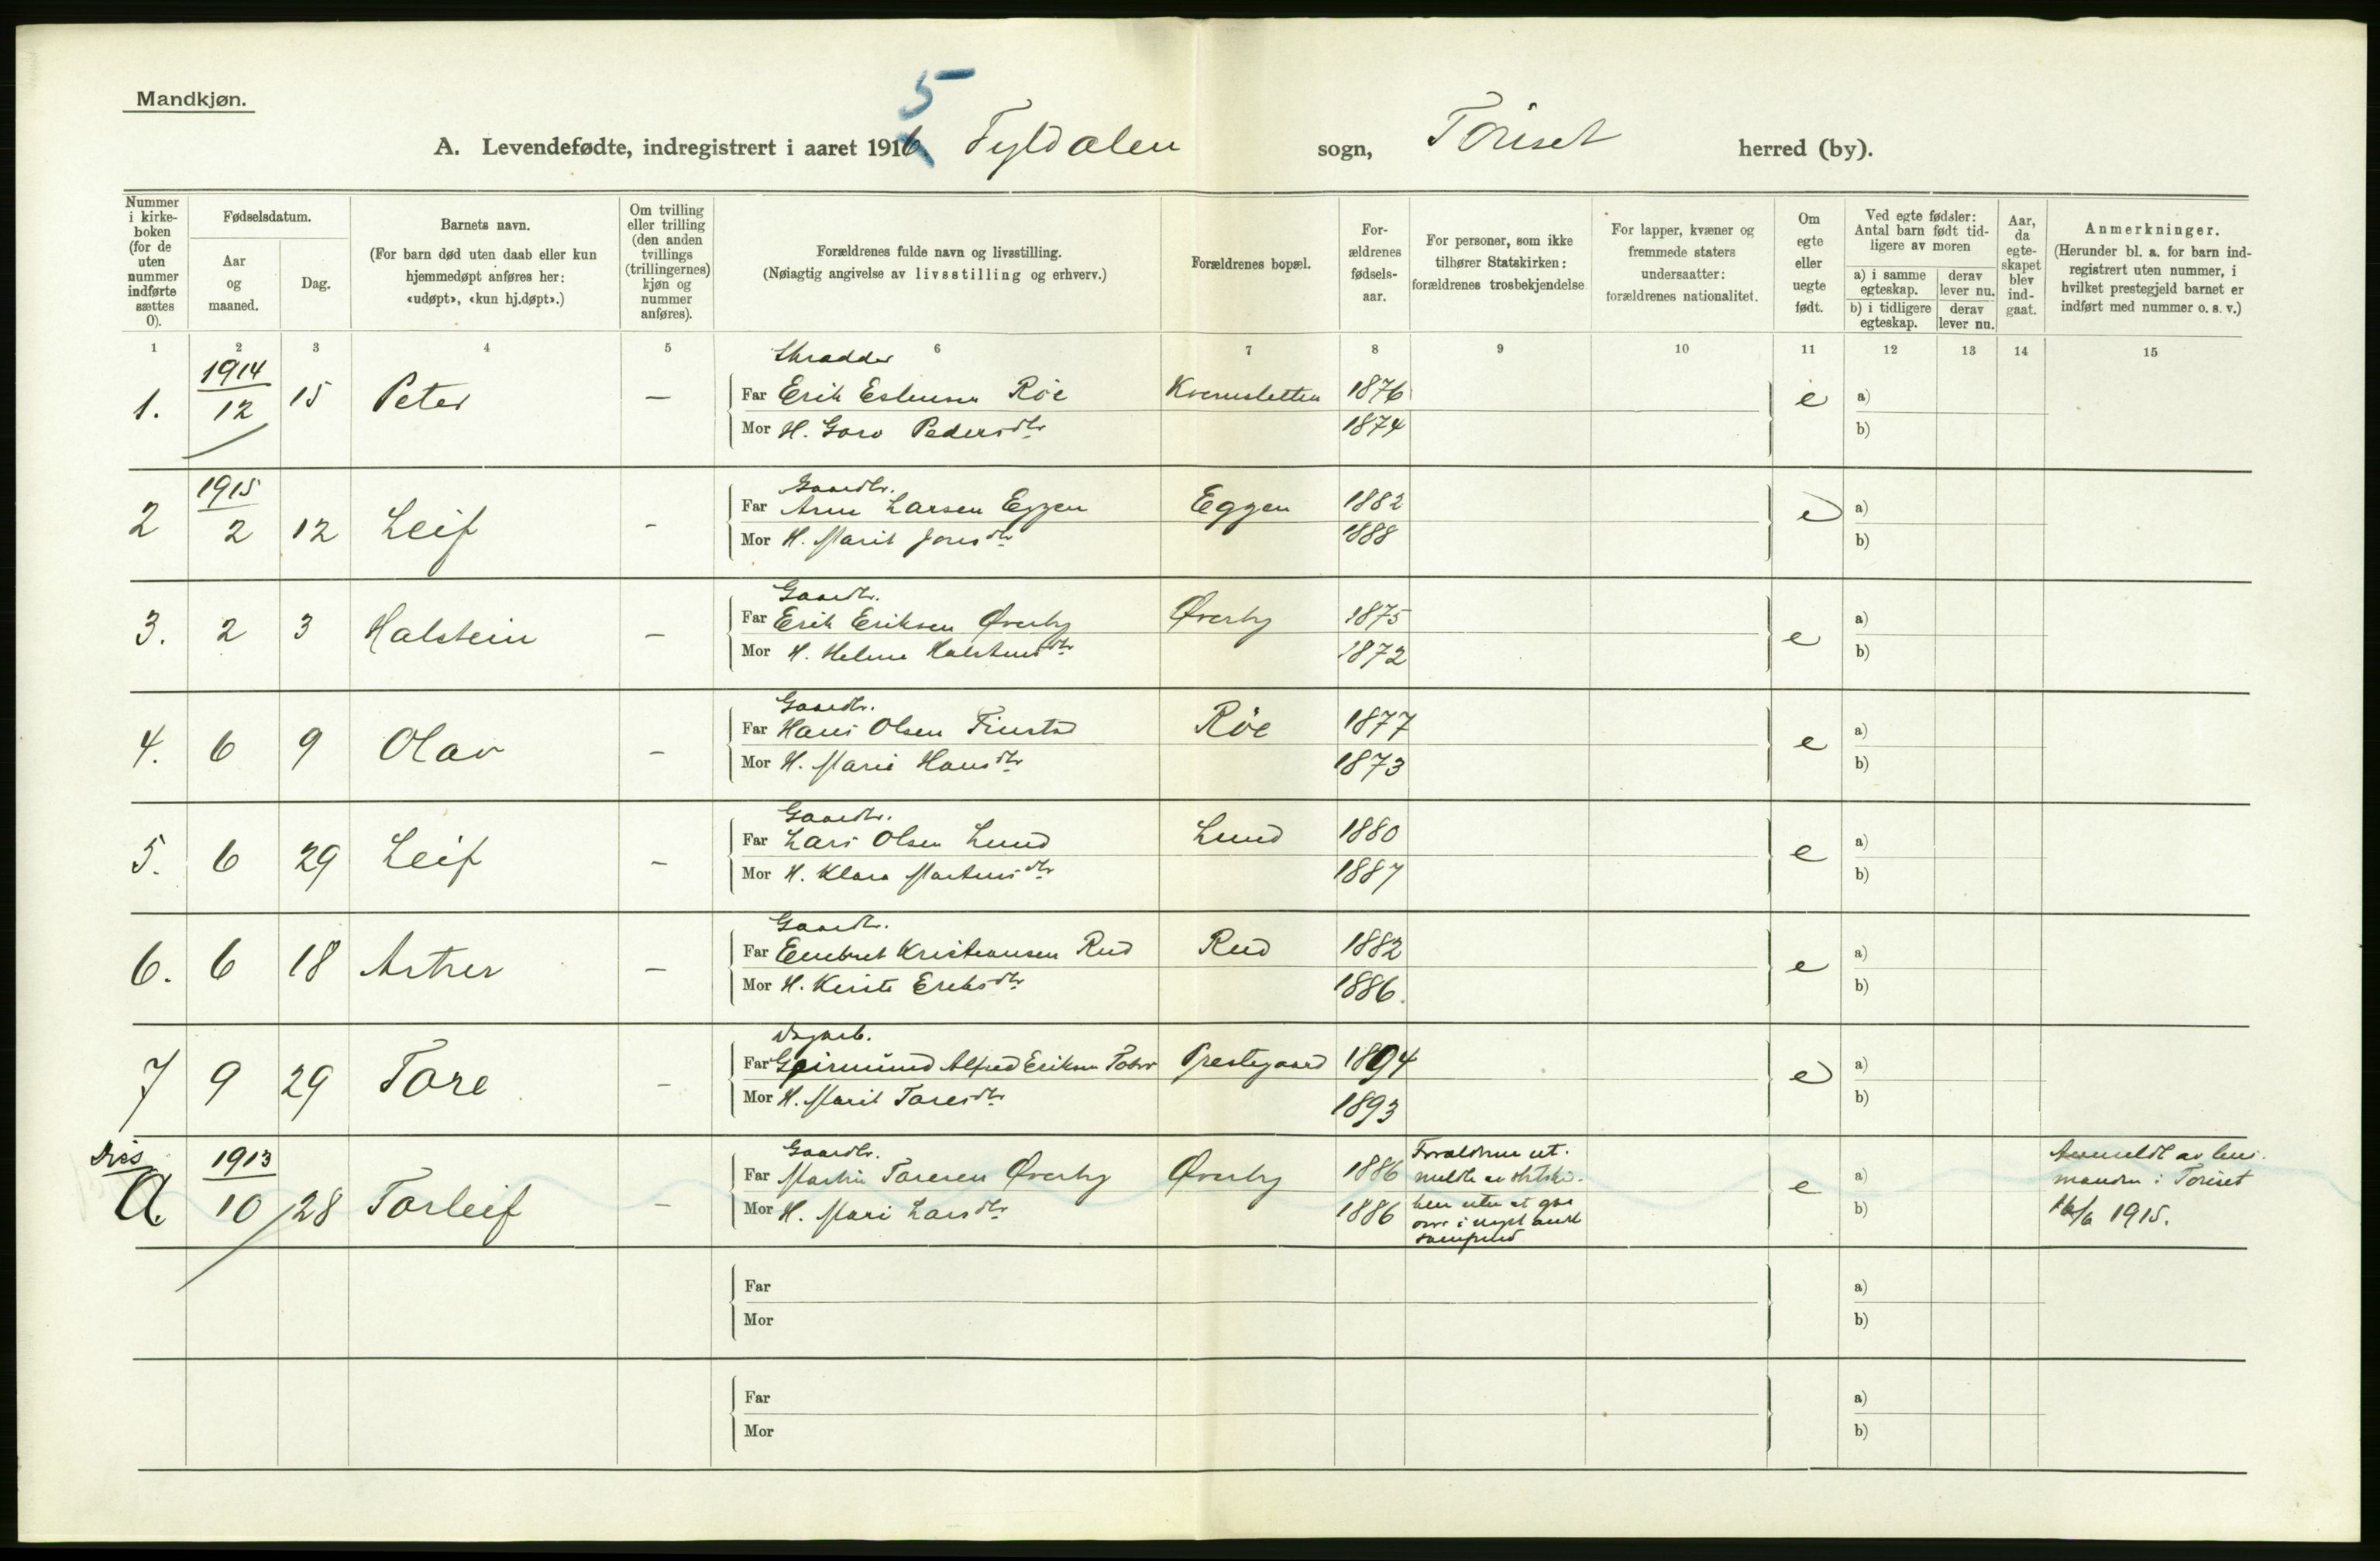 Mandkjøn.
5
A. Levendefødte, indregistrert i aaret 1916. Tyldalen sogn, Tönset herred (by).
Nummer i kirke-boken (for de uten nummer indførte sættes 0).
Fødselsdatum.
Aar og maaned.
Dag.
Barnets navn.
(For barn død uten daab eller kun hjemmedøpt anføres her: «udøpt», «kun hj.døpt».)
Om tvilling eller trilling (den anden tvillings (trillingernes) kjøn og nummer anføres).
Forældrenes fulde navn og livsstilling.
(Nøiagtig angivelse av livsstilling og erhverv.)
Forældrenes bopæl.
For-ældrenes fødsels-aar.
For personer, som ikke tilhører Statskirken: forældrenes trosbekjendelse
For lapper, kvæner og fremmede staters undersaatter: forældrenes nationalitet.
Om egte eller uegte født.
Ved egte fødsler: Antal barn født tid-ligere av moren
a) i samme egteskap.
derav lever nu.
b) i tidligere egteskap.
derav lever nu.
Aar, da egte-skapet blev ind-gaat.
Anmerkninger.
(Herunder bl. a. for barn ind-registrert uten nummer, i hvilket prestegjeld barnet er indført med nummer o. s. v.)
1 2 3 4 5 6 7 8 9 10 11 12 13 14 15
1914 Skrædder
1. 12 15 Peter — Far Erik Estensen Röe Kvernsletten 1876 e a)
Mor H. Goro Pedersdtr 1874 b)
1915 Gaardbr.
2 2 12 Leif - Far Arne Larsen Eggen Eggen 1882 e a)
Mor H. Marit Jonsdtr 1888 b)
Gaardbr.
3. 2 3 Halstein — Far Erik Eriksen Øverby Øverby 1875 e a)
Mor H. Helene Halstensdtr 1872 b)
Gaardbr.
4. 6 9 Olav — Far Hans Olsen Finstad Röe 1877 e a)
Mor H. Marie Hansdtr 1873 b)
Gaardbr.
5. 6 29 Leif — Far Lars Olsen Lund Lund 1880 e a)
Mor H. Klara Martensdtr 1887 b)
Gaardbr.
6. 6 18 — Far Embret Kristiansen Rud Rud 1882 e a)
Mor H. Kirsti Eriksdtr 1886. b)
Dagarb.
7 9 29 Tore - Far Geirmund Alfred Eriksen Prestegaard 1894 e a)
Mor H. Marit Toresdtr 1893 b)
Dis 1913 Gaardbr. Forældrene ut-
A. 10 28 Torleif — Far Martin Toresen Øverby Øverby 1886 meldt av statskir- e a) Anmeldt av lens-
Mor H. Mari Larsdtr 1886 ken uten at gaa b) manden i Tönset
over i noget andet 16/6 1915.
samfund
Far a)
Mor b)
Far a)
Mor b)